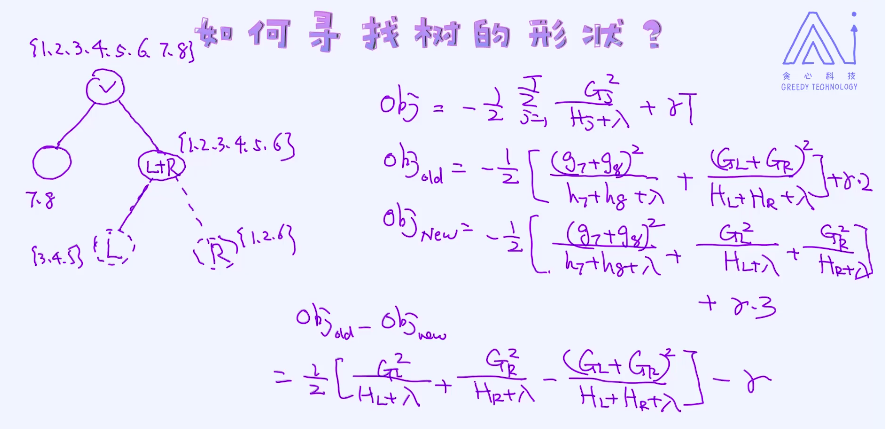 如何寻找树的形状?
贪心科技
GREEDY TECHNOLOGY
{1.2.3.4.5.6.7.8}
{1.2.3.4.5.6}
L+R
7.8
{3.4.5}
L
R
{1.2.6}
Obj = -1/2 Σ_{j=1}^{T} G_j^2/(H_j+λ) + γT
Obj_old = -1/2 [ (g_7+g_8)^2/(h_7+h_8+λ) + (G_L+G_R)^2/(H_L+H_R+λ) ] + γ·2
Obj_New = -1/2 [ (g_7+g_8)^2/(h_7+h_8+λ) + G_L^2/(H_L+λ) + G_R^2/(H_R+λ) ]
+ γ·3
Obj_old - Obj_new
= 1/2 [ G_L^2/(H_L+λ) + G_R^2/(H_R+λ) - (G_L+G_R)^2/(H_L+H_R+λ) ] - γ